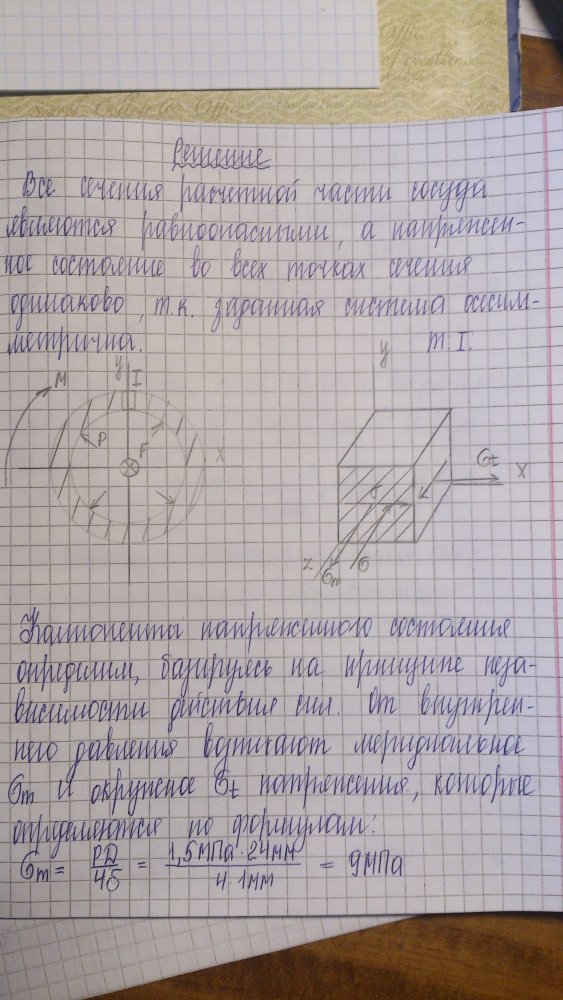 School Collection Office
Решение
Все сечения расчетной части сосуда
являются равноопасными, а напряжен-
ное состояние во всех точках сечения
одинаково, т.к. заданная система осесим-
метрична.
т. I:
y
I
M
P
F
X
y
τ
σt
X
z
σm
σ
Компоненты напряженного состояния
определим, базируясь на принципе неза-
висимости действия сил. От внутрен-
него давления возникают меридиональное
σm и окружное σt напряжения, которые
определяются по формулам:
σm = PD/4δ = 1,5МПа·24мм/4·1мм = 9МПа